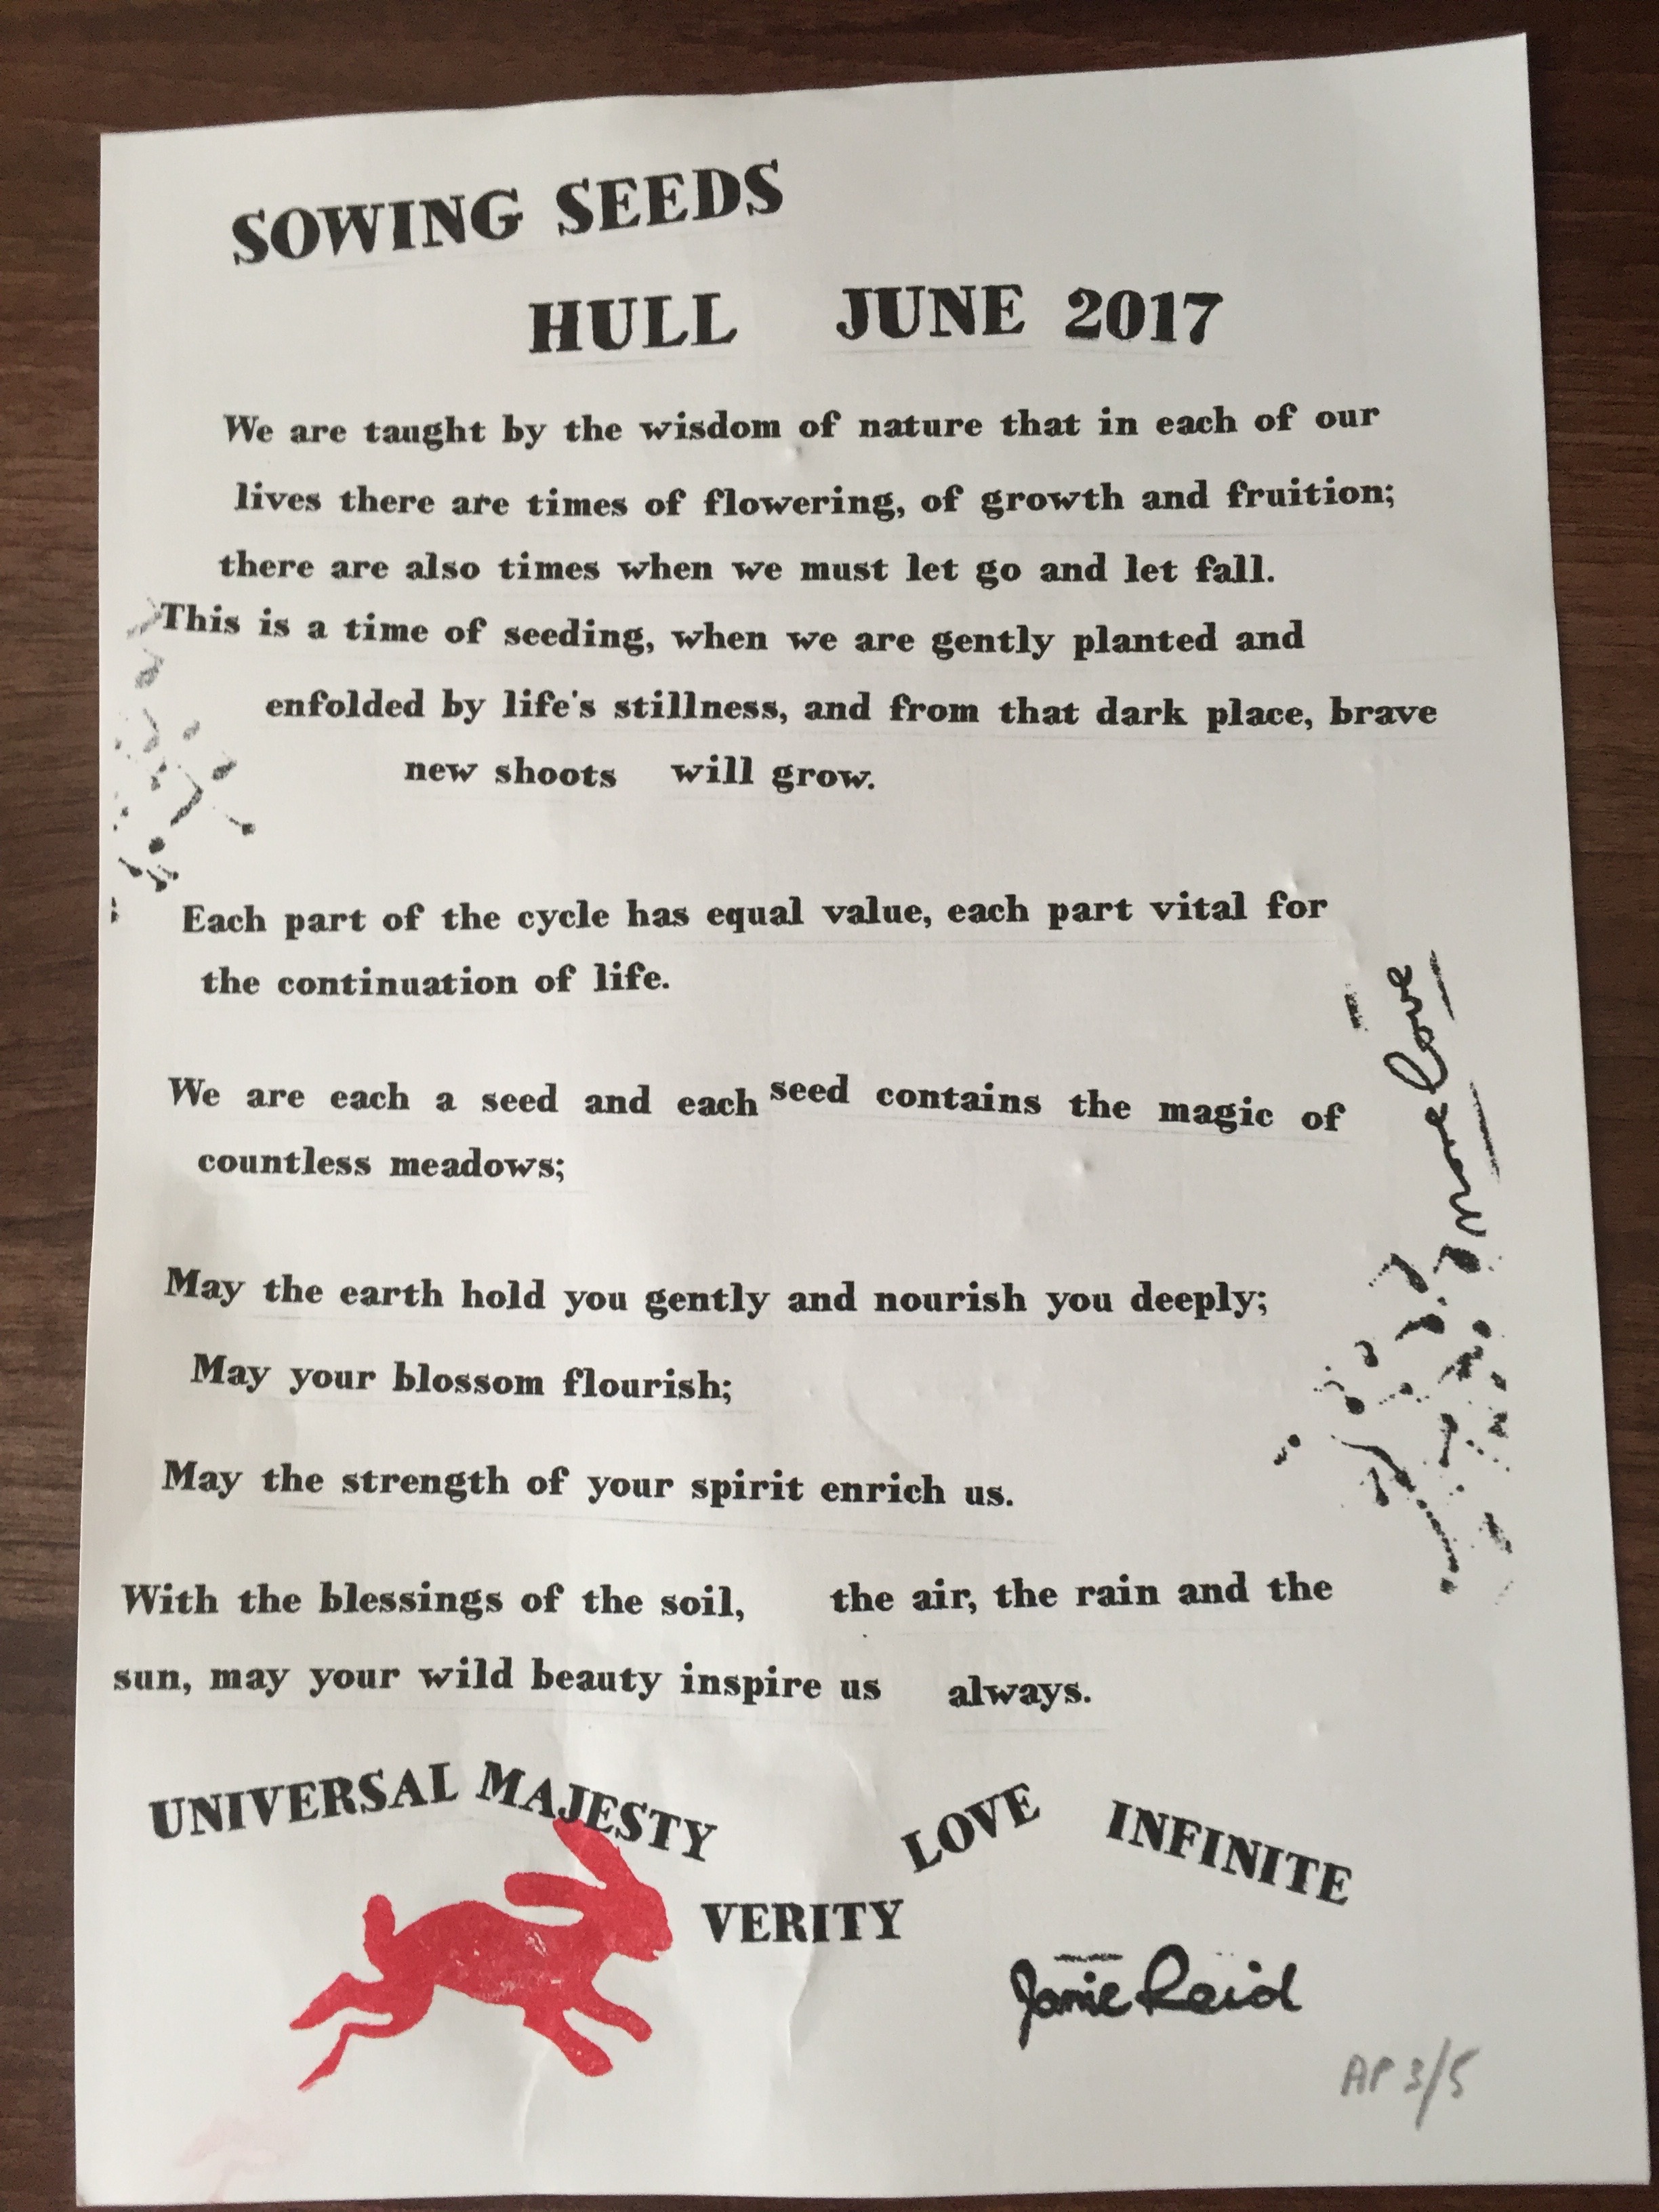 SOWING SEEDS
HULL JUNE 2017
We are taught by the wisdom of nature that in each of our
lives there are times of flowering, of growth and fruition;
there are also times when we must let go and let fall.
This is a time of seeding, when we are gently planted and
enfolded by life's stillness, and from that dark place, brave
new shoots will grow.
Each part of the cycle has equal value, each part vital for
the continuation of life.
We are each a seed and each seed contains the magic of
countless meadows;
May the earth hold you gently and nourish you deeply;
May your blossom flourish;
May the strength of your spirit enrich us.
With the blessings of the soil, the air, the rain and the
sun, may your wild beauty inspire us always.
more love
UNIVERSAL MAJESTY
VERITY
LOVE INFINITE
Jamie Reid
AP 3/5